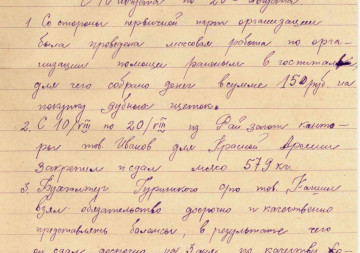 С 10 августа по 20 августа
1. Со стороны первичной парт организации
была проведена массовая работа по орга-
низации помощи раненым в госпитале,
для чего собрано денег в сумме 150 руб. на
покупку зубных щеток.
2. С 10/VIII по 20/VIII из Рай загот конто-
ры тов Иванов для Красной Армии
Закрепил и сдал мыло 579 кг.
3. Бухгалтер сро тов.
взял обязательство досрочно и качественно
представлять балансы, в результате чего
он сдал досрочно на 3 дня по качеству